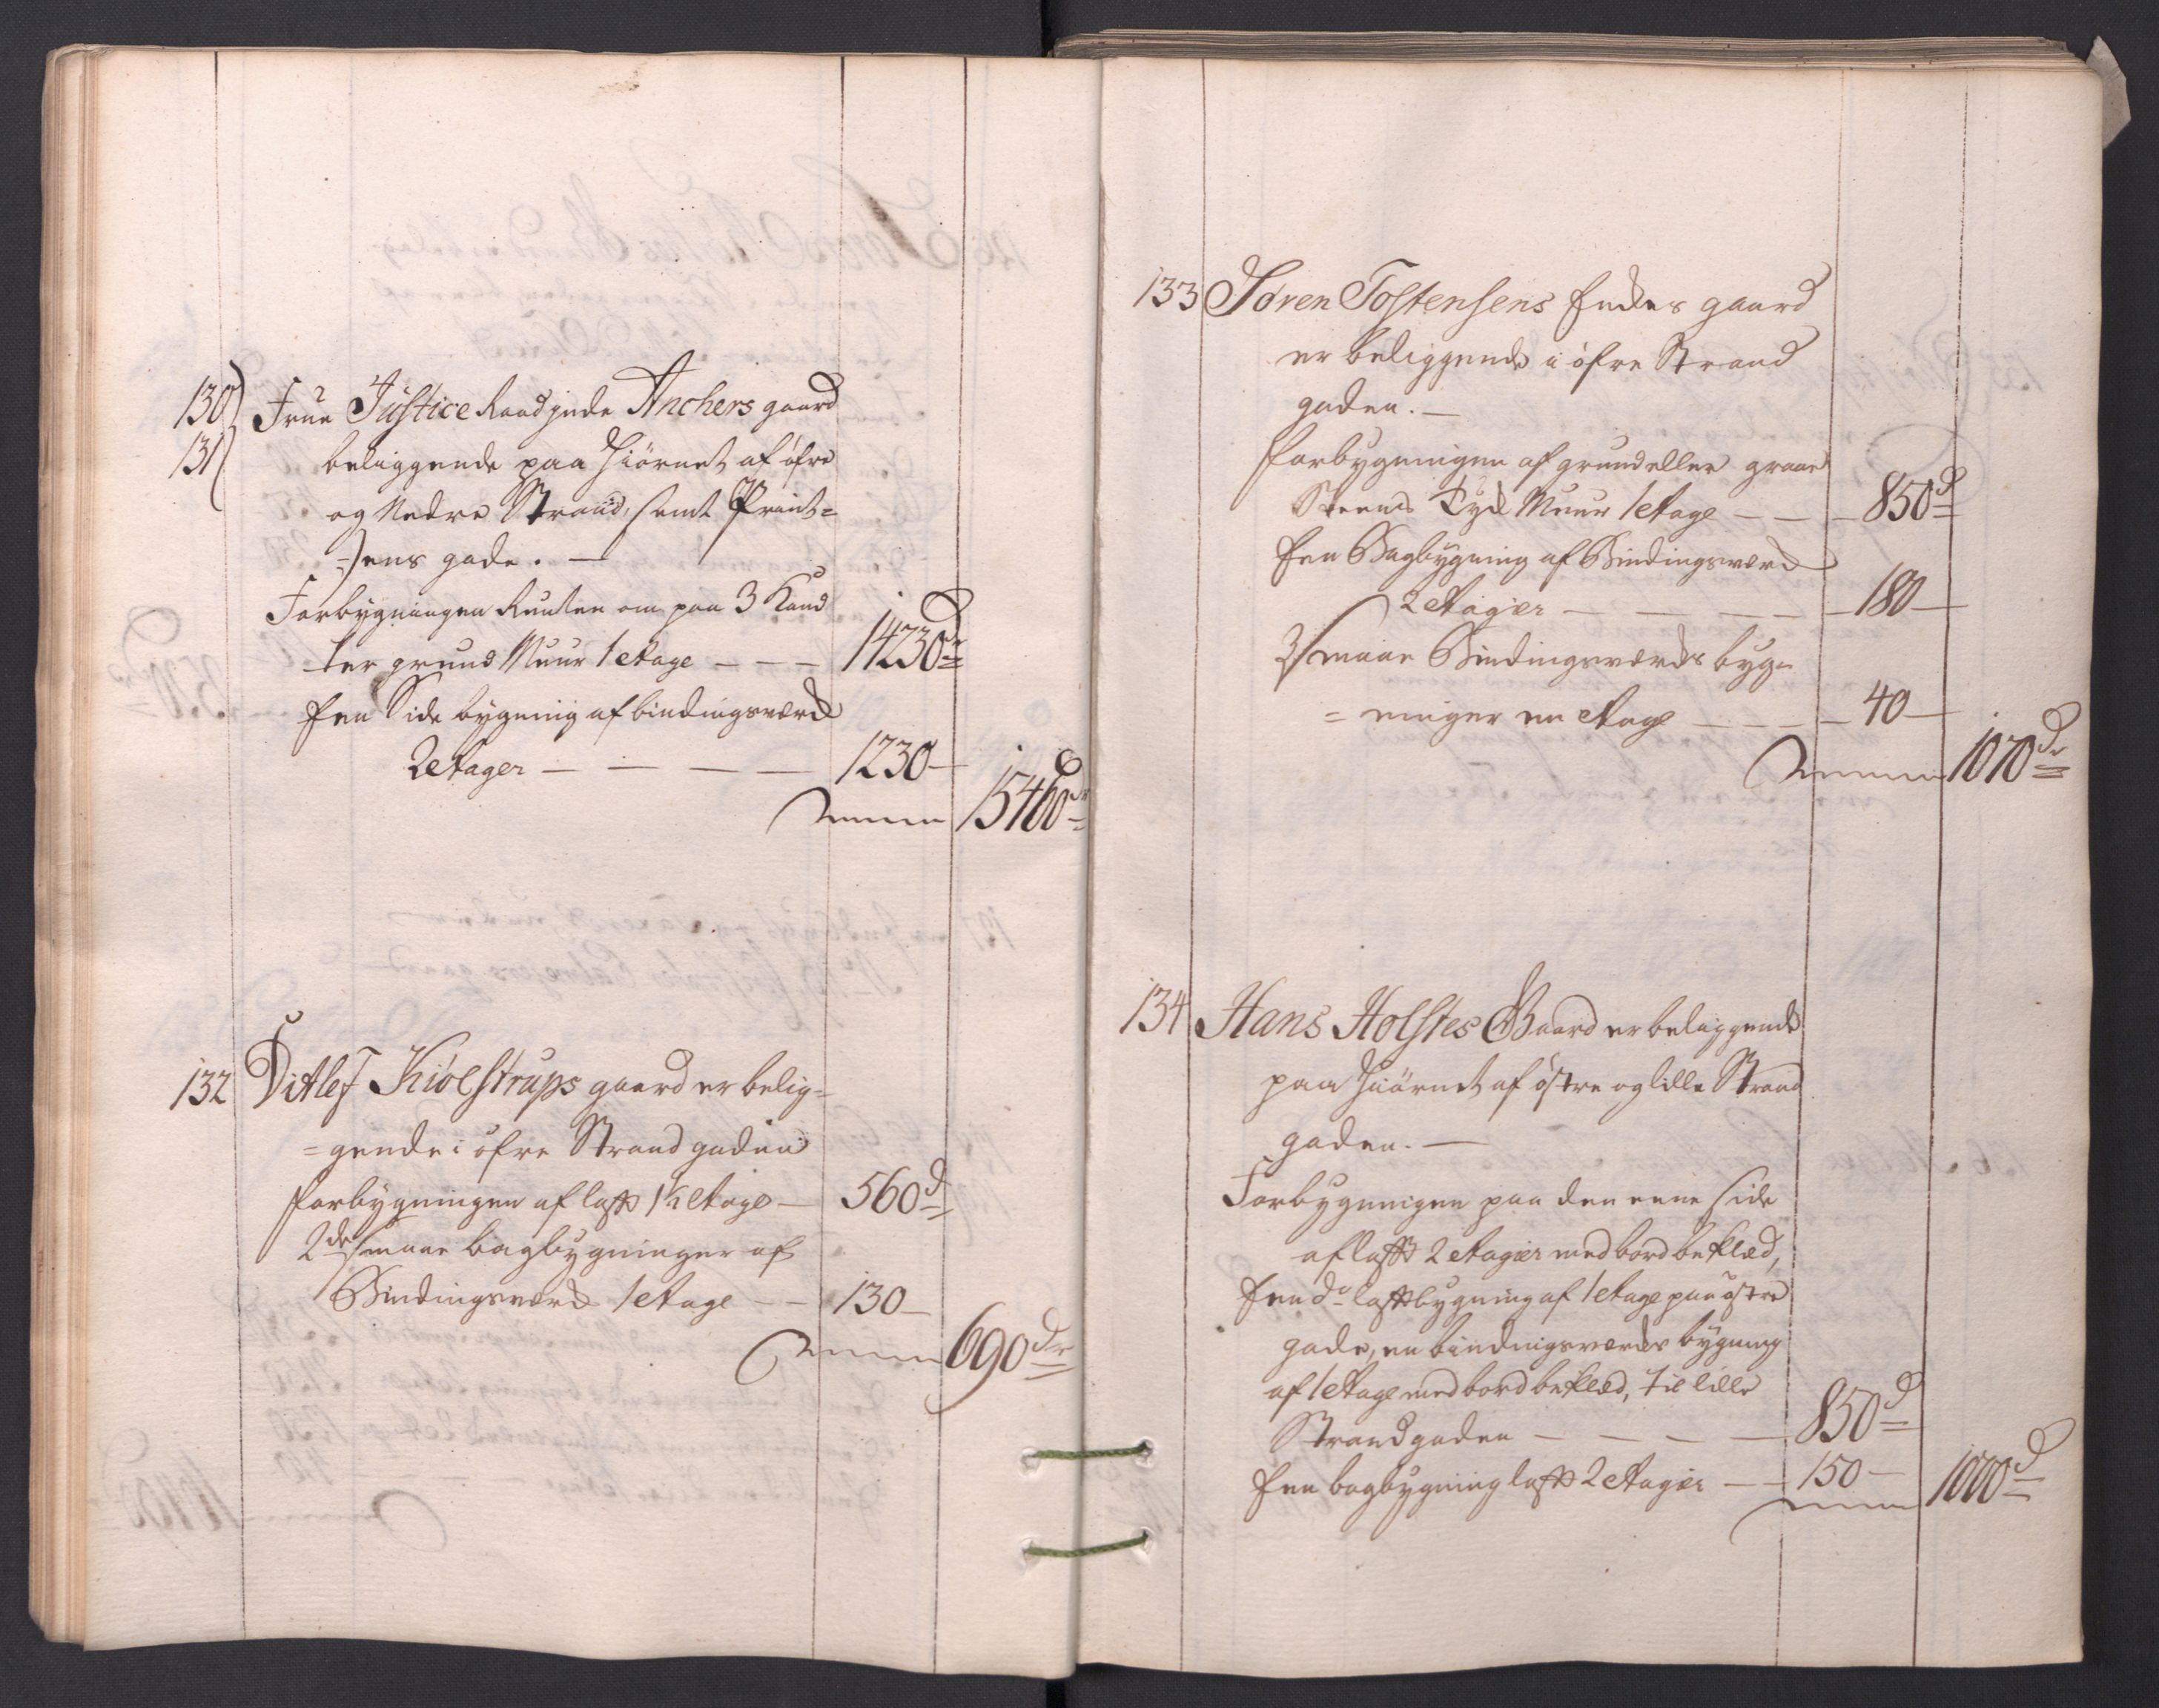 130)
131)
Frue Justice Raadinde Anchers gaard
beliggende paa Hiörnet af öfre
og Nedre Strand, samt Print=
=) ens gade. —
Forbygningen Runten om paa 3 Kand
ter grund Muur 1 etage — — — 14230 dr
Een Side bygning af bindingsværk
2 etager — — — — 1230 —
Summa 15460 dr
132 Ditlef Kiölstrups gaard er belig=
=gende i öfre Strand gaden
Forbygningen af laft 1½ etage — 560 d
2de smaae bagbygninger af
Bindingsværk 1 etage — — 130 —
Summa 690 dr
133 Sören Tostensens Enkes gaard
er beliggende i öfre Strand
gaden. —
Forbygningen af grund eller graae
Steens Tyk Muur 1 etage — — — 850 d
Een Bagbygning af Bindingsværk
2 etager — — — — 180 —
3 smaae Bindingsværks byg=
=ninger en etage — — — 40 —
Summa 1070 dr
134 Hans Holstes Gaard er beliggende
paa Hiörnet af östre og lille Strand
gaden. —
Forbygningen paa den eene side
af laft 2 etager med bord beklæd,
Een do laftbygning af 1 etage paa östre
gade, en bindingsværks bygning
af 1 etage med bord beklæd, til lille
Strandgaden — — — — 850 d
Een bagbygning laft 2 etager — — 150 —
Summa 1000 d